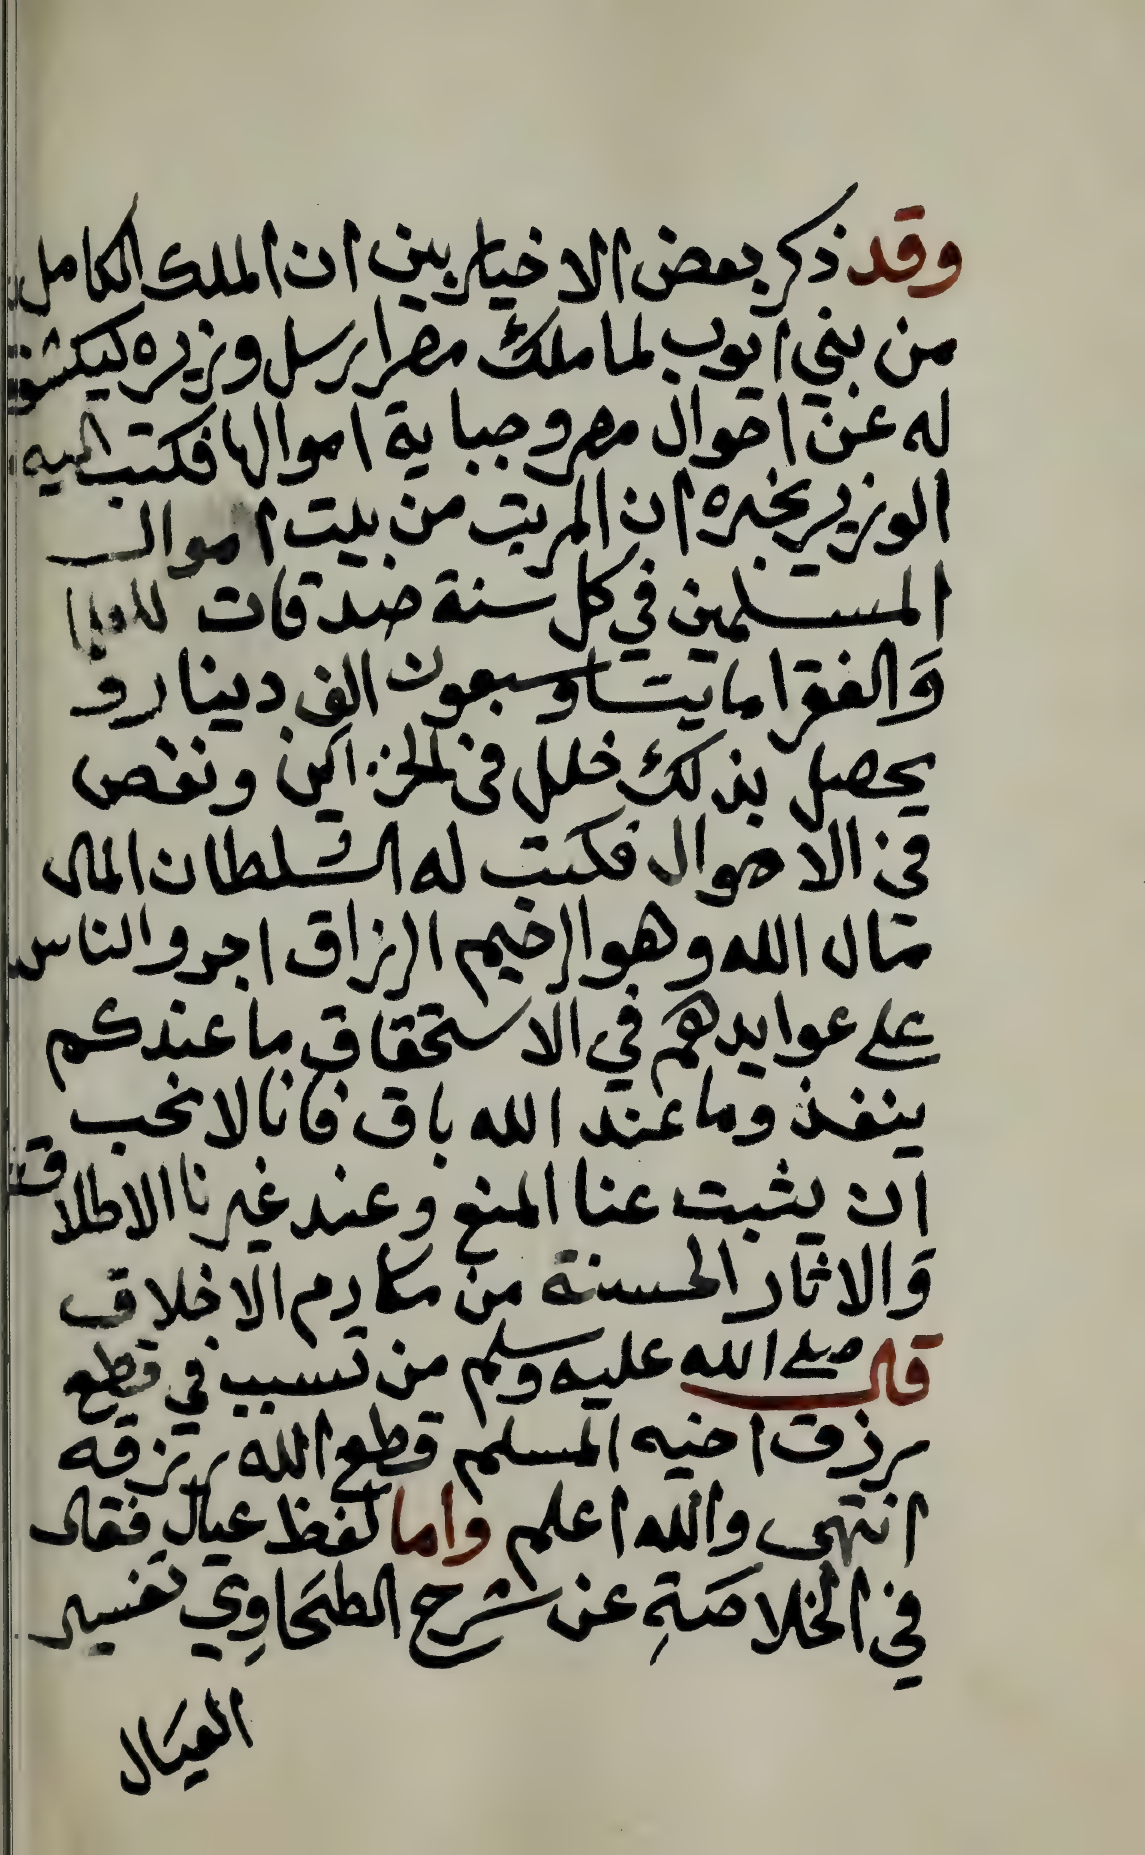 وقد ذكر بعض الاخيارين ان الملك الكامل
من بني ايوب لما ملك مصر ارسل وزيره ليكشف
له عن احوال مصر وجباية اموالها فكتب اليه
الوزير يخبره ان المرتب من بيت اموال
المسلمين في كل سنة صدقات للعلما
والفقرا مايتا وسبعون الف دينار و
يحصل بذلك خلل في الخزاين ونقص
في الاموال فكتب له السلطان المال
مال الله وهو الرحيم الرزاق اجروا الناس
على عوايدهم في الاستحقاق ما عندكم
ينفذ وما عند الله باق فانا لا نحب
ان يثبت عنا المنع وعند غيرنا الاطلاق
والاثار الحسنة من مكارم الاخلاق
قال صلى الله عليه وسلم من تسبب في قطع
رزق اخيه المسلم قطع الله رزقه
انتهى والله اعلم واما لفظ عيال فقال
في الخلاصة عن شرح الطحاوي تفسير
العيال